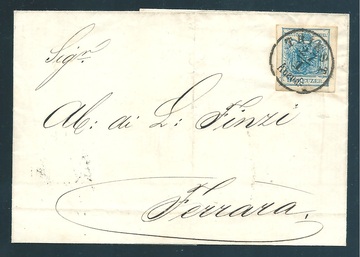 Sigr
Ab: di L: Finzi
Ferrara.